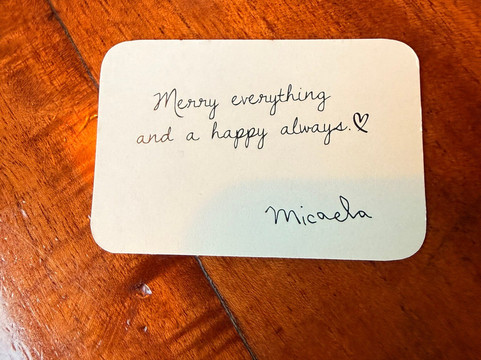 Merry everything
and a happy always.♡
Micaela